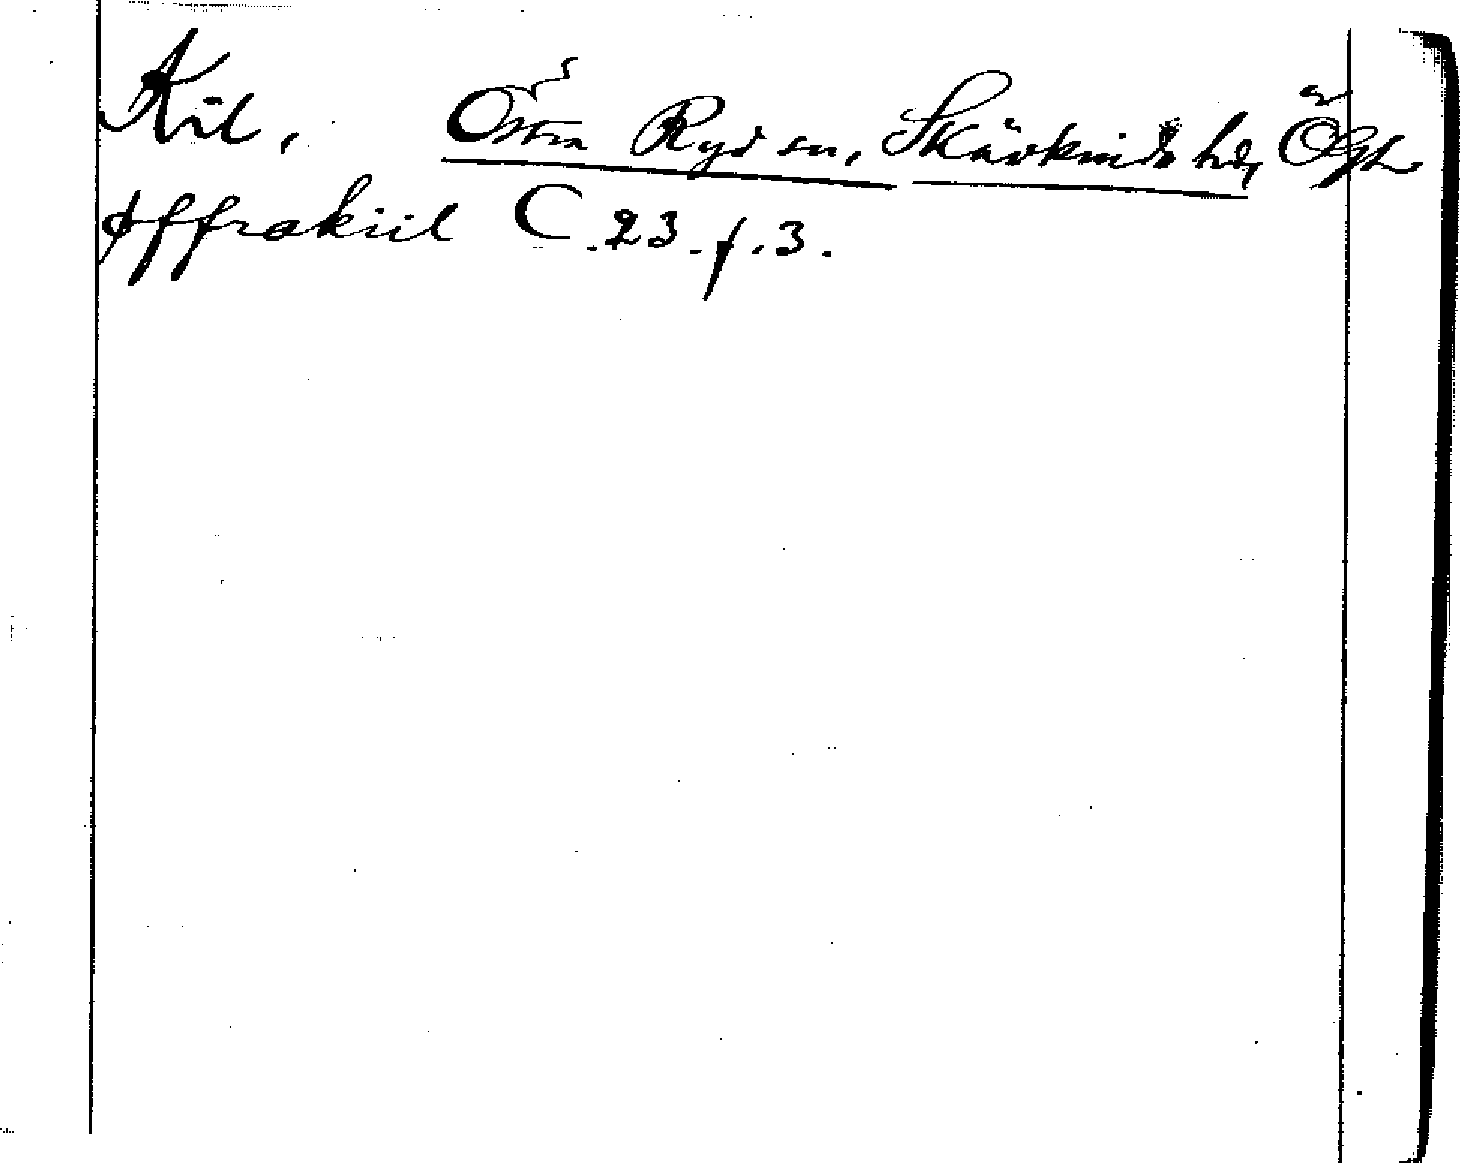 Kil, Östra Ryd sn, Skärkinds hd, Ögtl
øffrakiil C. 23. f. 3.